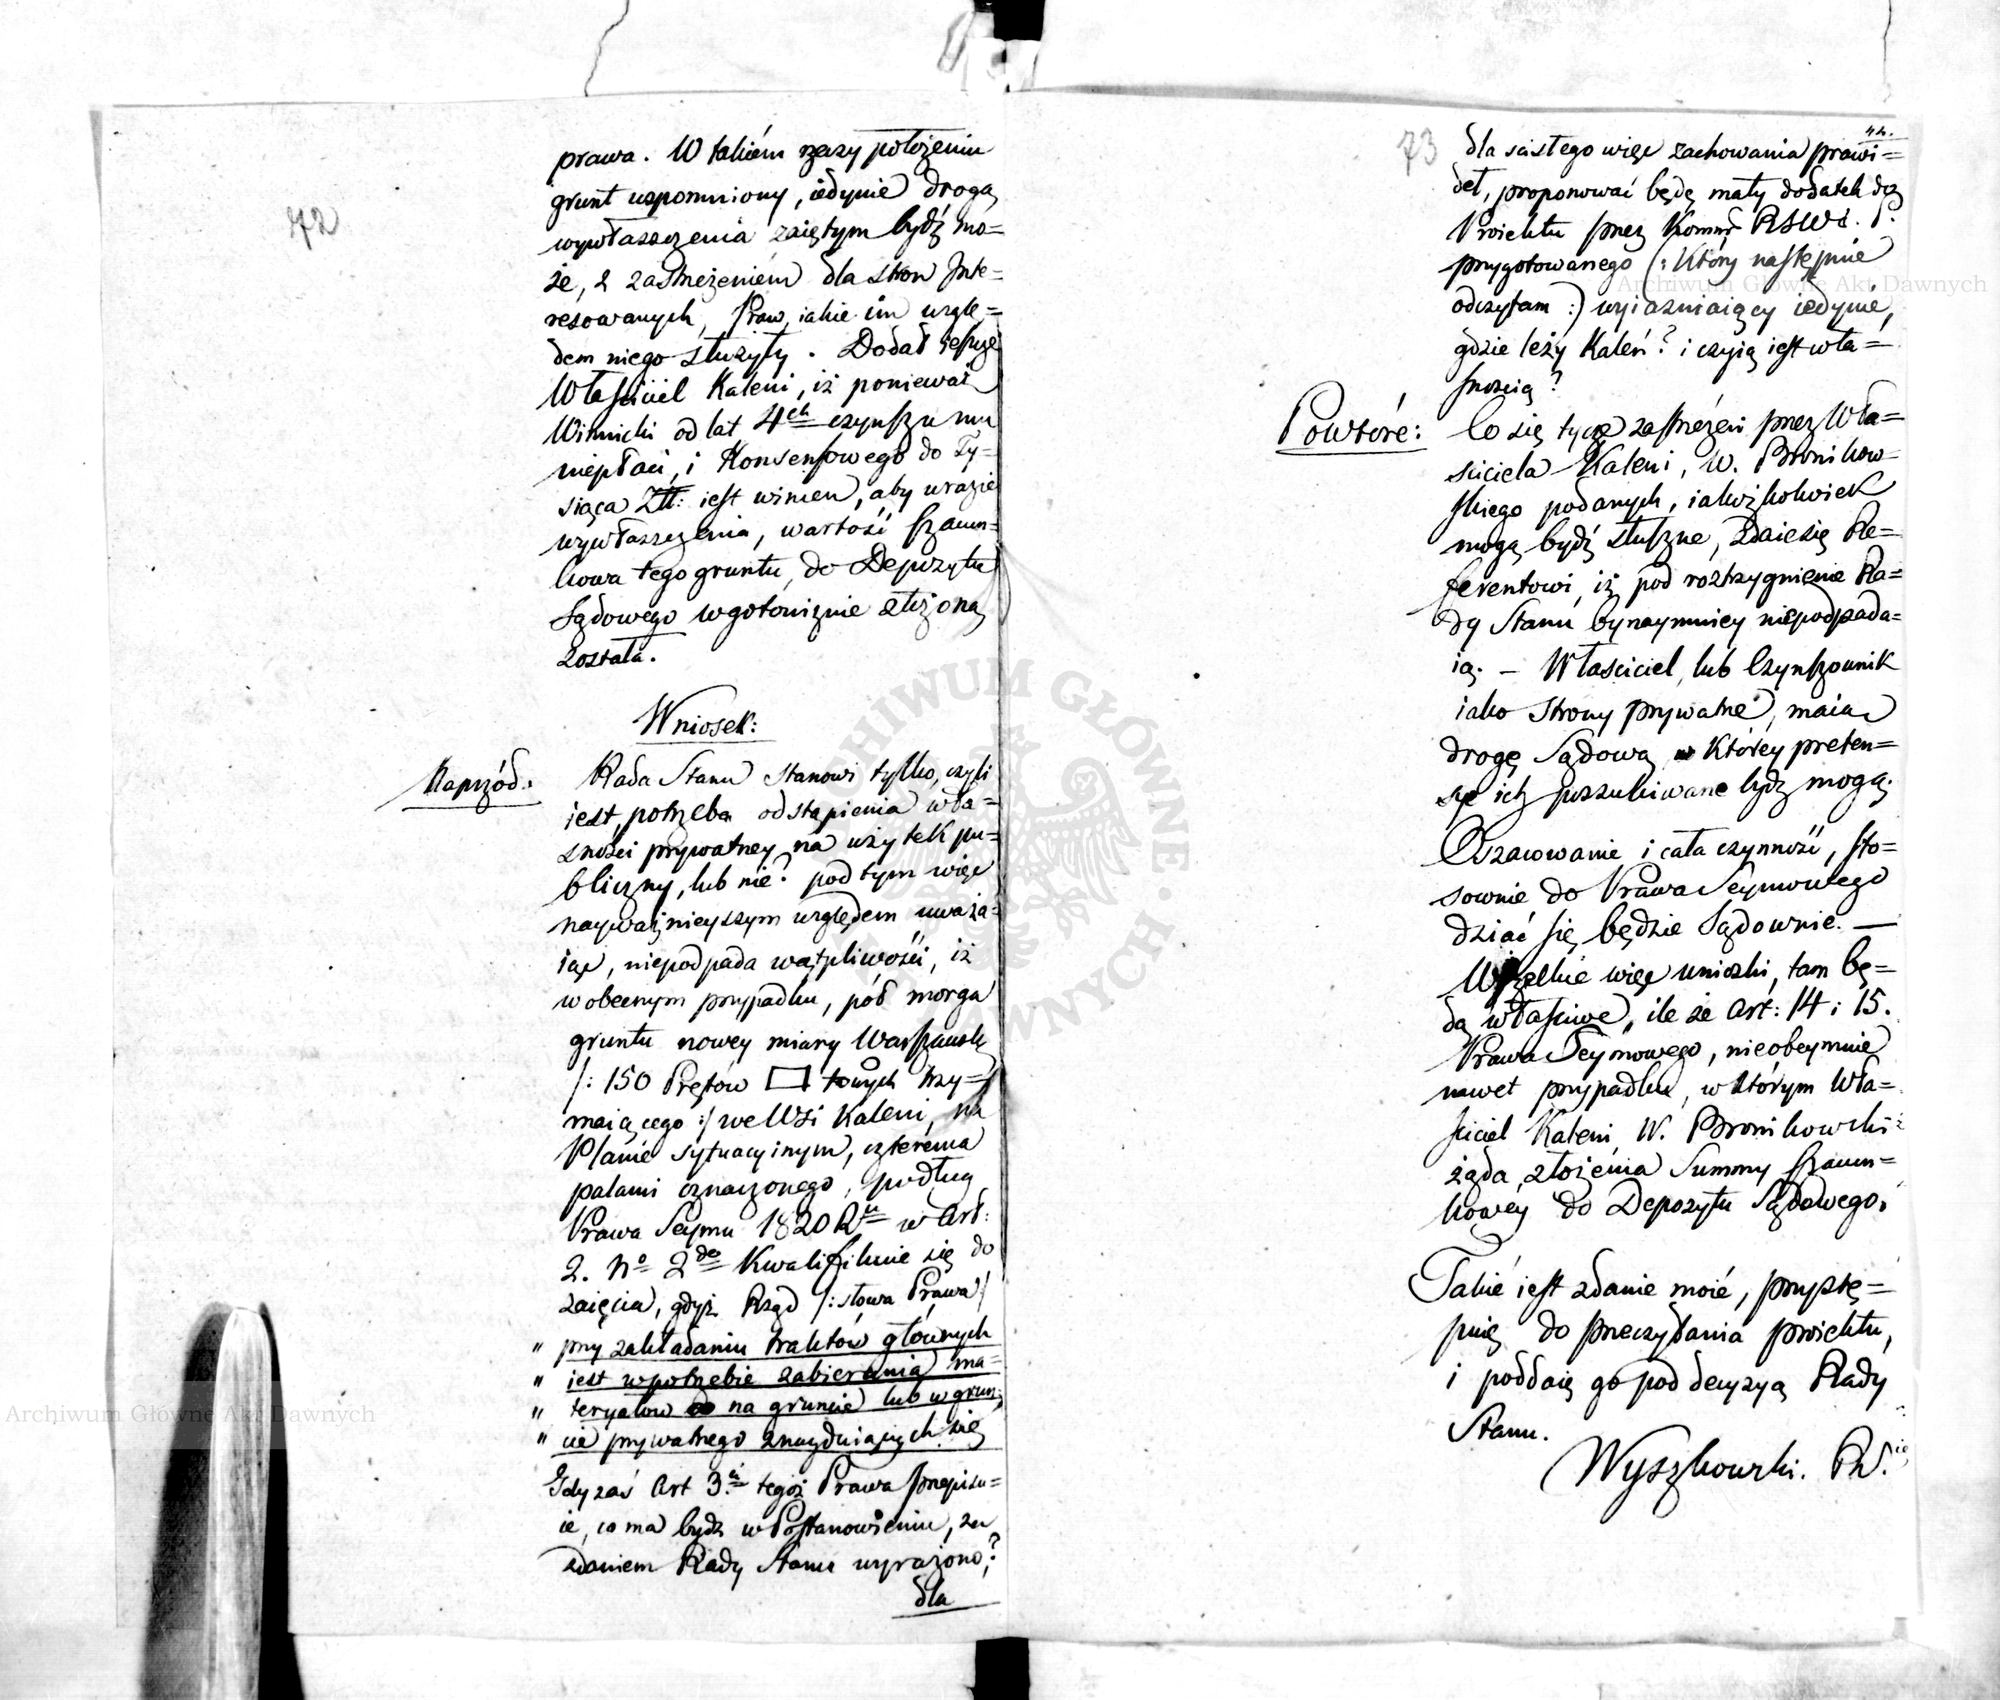 72
prawa. W takiém rzeczy położeniu
grunt wspomniony, iedynie drogą
wywłaszczenia zaiętym bydź mo=
że, z zastrzeżeniem dla stron Inte=
resowanych, Praw, iakie im wzglę=
dem niego służyły. Dodał ieszcze
Właściciel Kaleni, iż ponieważ
Winnicki od lat 4ch czynszu mu
niepłaci, i Konsensowego do Ty=
siąca Zł: iest winien, aby wrazie
wywłaszczenia, wartość szacun=
kowa tego gruntu, do Depozytu
Sądowego wgotowiznie złożoną
została.
Wniosek:
Naprzód:
Rada Stanu stanowi tylko, czyli
iest potrzeba odstąpienia wła=
sności prywatney na użytek pu=
bliczny, lub nie? pod tym więc
nayważnieyszym względem uważa=
iąc, niepodpada wątpliwości, iż
w obecnym przypadku, pół morga
gruntu nowey miary Warszawsk:
/: 150 Prętów □ towych trzy=
maiącego :/ we Wsi Kaleni, na
Planie sytuacyinym, czterema
palami oznaczonego, podług
Prawa Seymu 1820 R. w Art:
2. No 2do Kwalifikuie się do
zaięcia, gdyż Rząd /: słowa Prawa /
" przy zakładaniu traktów głównych
" iest w potrzebie zabierania ma=
" teryałow na gruncie lub w grun=
" cie prywatnego znayduiących się
Gdy zaś Art 3. tegoż Prawa przepisu=
ie, co ma bydź w Postanowieniu, za
zdaniem Rady Stanu wyrażono?
dla
73
dla scisłego więc zachowania prawi=
deł, proponować będę mały dodatek do
Proiektu przez Kommis RSWi. P.
przygotowanego (: Który następnie
odczytam :) wyiaźniaiący iedynie,
gdzie leży Kaleń? i czyią iest wła=
snością?
Powtóre:
Co się tycze zastrzeżeń przez Wła=
ściciela Kaleni, W. Bronikow=
skiego podanych, iakożkolwiek
mogą bydź słuszne, Zdaie się Re=
ferentowi, iż pod roztrzygnienie Ra=
dy Stanu bynaymniey niepodpada=
ią. — Właściciel, lub Czynszownik
iako Strony prywatne, maią
drogę Sądową w Którey preten=
sye ich poszukiwane bydź mogą.
Oszacowanie i cała czynność, sto=
sownie do Prawa Seymowego
dziać się będzie Sądownie. —
Wszelkie więc wnioski, tam bę=
dą właściwe, ile że Art: 14 i 15.
Prawa Seymowego, nieobeymuie
nawet przypadku, w którym Wła=
ściciel Kaleni W. Bronikowski
żąda złożenia Summy szacun=
kowey do Depozytu Sądowego.
Takie iest zdanie moie, przystę=
puię do przeczytania proiektu,
i poddaię go pod decyzyą Rady
Stanu.
Wyszkowski.
Archiwum Główne Akt Dawnych
Archiwum Główne Akt Dawnych
ARCHIWUM GŁÓWNE · AKT DAWNYCH ·